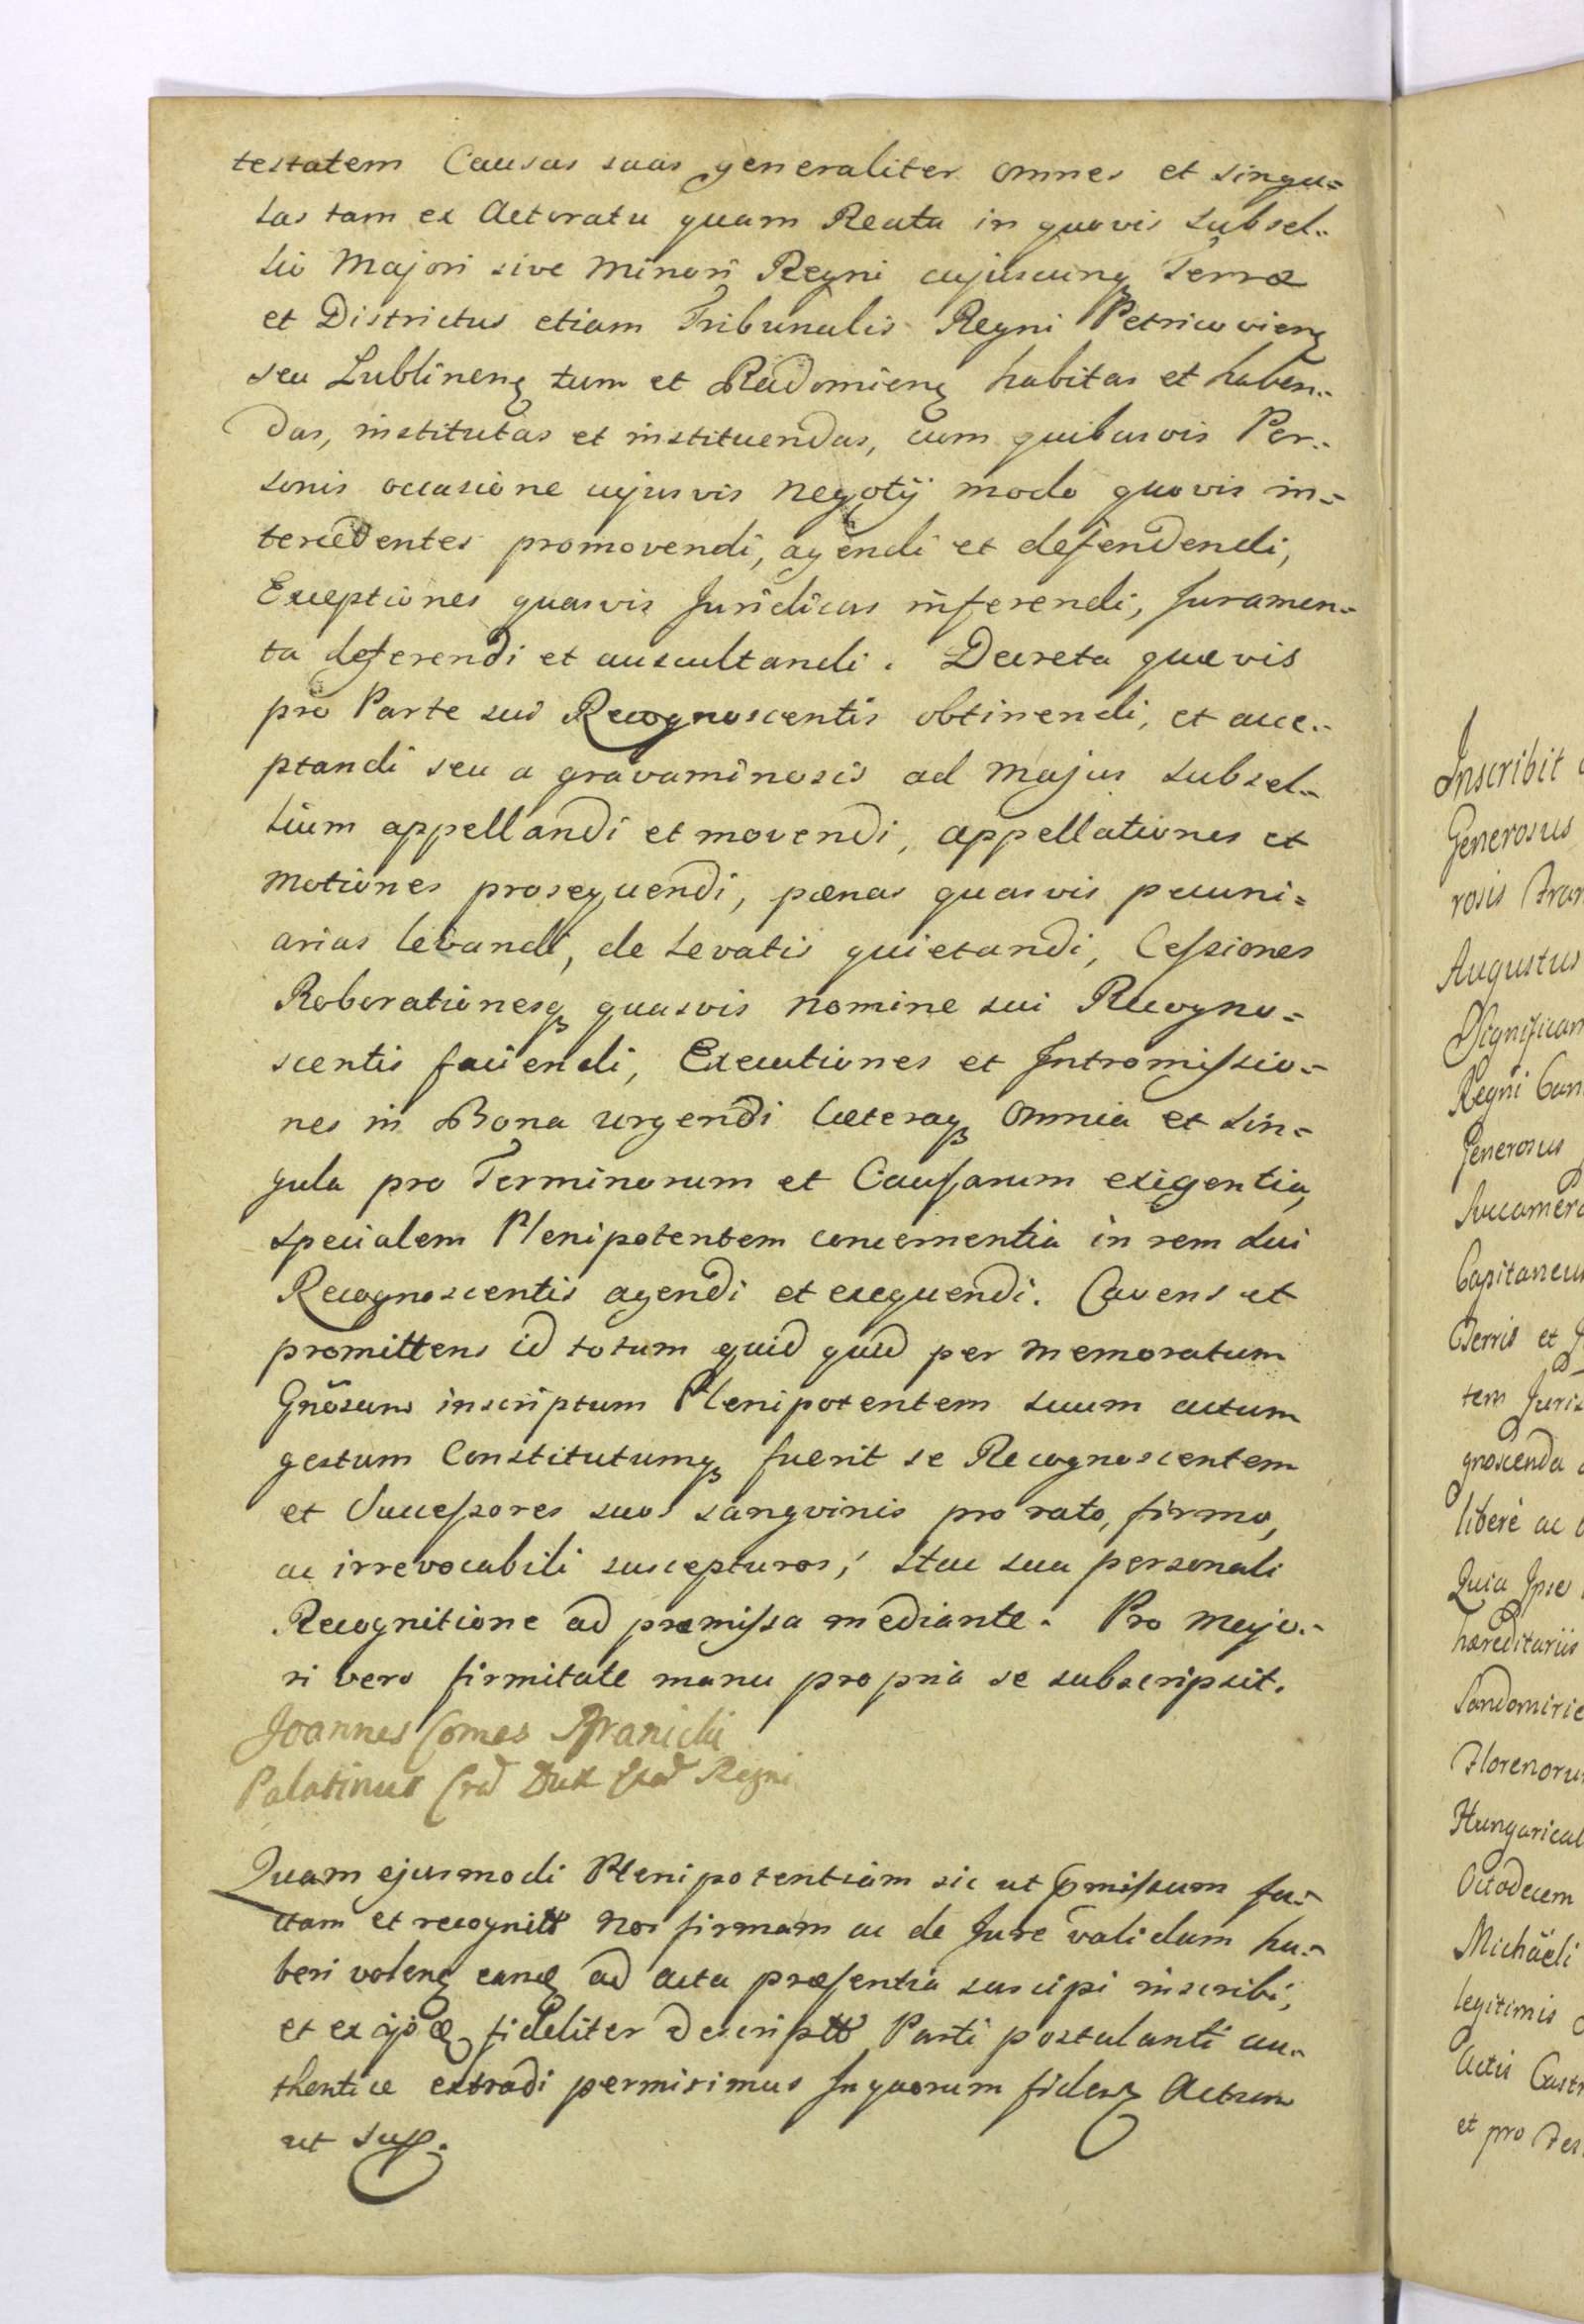 testatem Causas suas generaliter omnes et singu=
las tam ex Actoratu quam Reatu in quovis subsel=
lio Majori sive Minori Regni cujuscunq Terræ
et Districtus etiam Tribunalis Regni Petricovienq
seu Lublinenq tum et Radomienq habitas et haben=
das, institutas et instituendas, cum quibusvis Per=
sonis occasione cujusvis negotij modo quovis in=
tercedentes promovendi, agendi et defendendi,
Exceptiones quasvis Juridicas inferendi, Juramen=
ta deferendi et auscultandi. Decreta quævis
pro Parte sui Recognoscentis obtinendi, et acce=
ptandi seu a gravaminosis ad majus subsel=
lium appellandi et movendi, appellationes et
motiones prosequendi, pænas quasvis pecuni=
arias levandi, de levatis quietandi, Cessiones
Roborationesq quasvis nomine sui Recogno=
scentis faciendi, Executiones et Intromissio=
nes in Bona urgendi Cæteraq omnia et sin=
gula pro Terminorum et Causarum exigentia,
specialem Plenipotentem concernentia in rem sui
Recognoscentis agendi et exequendi. Cavens et
promittens id totum quid quid per memoratum
Gnosum inscriptum Plenipotentem suum actum
gestum Constitutumq fuerit se Recognoscentem
et Successores suos sangvinis pro rato, firmo,
ac irrevocabili suscepturos; Hac sua personali
Recognitione ad præmissa mediante. Pro majo=
ri vero firmitate manu propria se subscripsit.
Joannes Comes Branicki
Palatinus Crac Dux Exerc Regni
Quam ejusmodi Plenipotentiam sic ut pmissum fa=
ctam et recognitt nos firmam ac de Jure validam ha=
beri volenq eanq ad acta præsentia suscipi inscribi,
et ex fideliter descriptt Parti postulanti au=
thentice extradi permisimus In quorum fidem Actum
ut sup.
Inscribit
Generosus
rosis Fran
Augustus
Regni Cam
Generosus
Succamera
Capitaneus
Terris et
tem Juris
gnoscenda
liberè ac
Quia Ipse
hæreditariis
Sandomirie
Florenorum
Hungarical
Octodecem
Michäeli
legitimis
Actis Castr
et pro